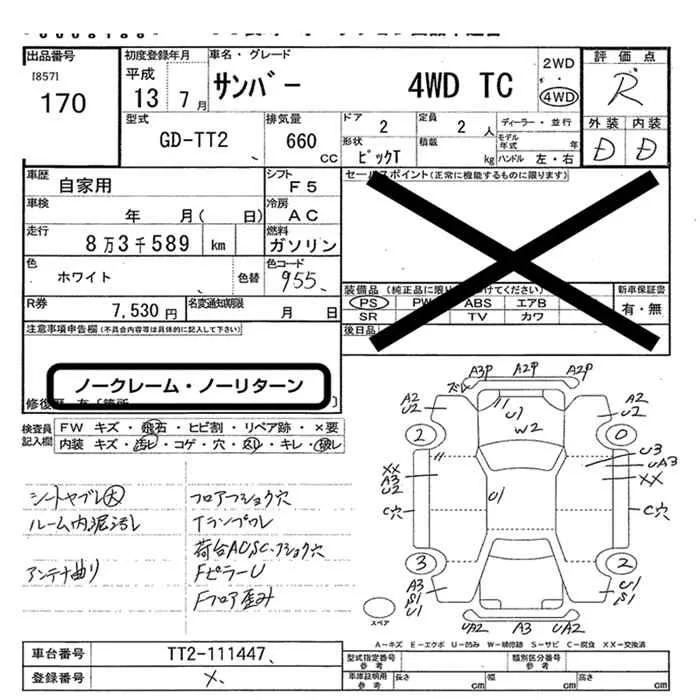 出品番号
[857]
170
初度登録年月
平成
13 7月
車名・グレード
サンバー 4WD TC
2WD
・
4WD
評価点
R
外装 内装
D D
型式
GD-TT2
排気量
660
CC
ドア
2
定員
2 人
ディーラー・並行
モデル年式 年
形状
ピックT
積載
kg
ハンドル 左・右
車歴
自家用
シフト
F5
車検
年 月( 日)
冷房
AC
走行
8万3千589 km
燃料
ガソリン
色
ホワイト
色替
色コード
955
R券
7,530円
名変通知期限
月 日
セールスポイント(正常に機能するものに限ります)
装備品(純正品に限り
けてください)
新車保証書
PS PW ABS エアB
有・無
SR TV カワ
後日品
注意事項申告欄(不具合内容等は具体的に記入して下さい)
ノークレーム・ノーリターン
修復歴
検査員記入欄
FW キズ・飛石・ヒビ割・リペア跡・×要
内装 キズ・汚レ・コゲ・穴・凹・キレ・破レ
シートヤブレ大
フロアフショク穴
ルーム内泥汚レ
Tランプワレ
荷台AU,SC,フショク穴
アンテナ曲り
FピラーU
Fフロア歪み
A3P A2P A2P
ズレ
A2
U2
A2
U2
U1
W2
2
0
U3
UA3
XX
XX
A3
U2
U1
C穴
C穴
3
2
A3
S1
U1
U1
S1
UA2 A3 UA2
スペア
A-キズ E-エクボ U-凹み W-補修跡 S-サビ C-腐食 XX-交換済
車台番号
TT2-111447
登録番号
×
型式指定番号
参考
類別区分番号
参考
車庫証明用
参考
長さ cm 幅 cm 高さ cm